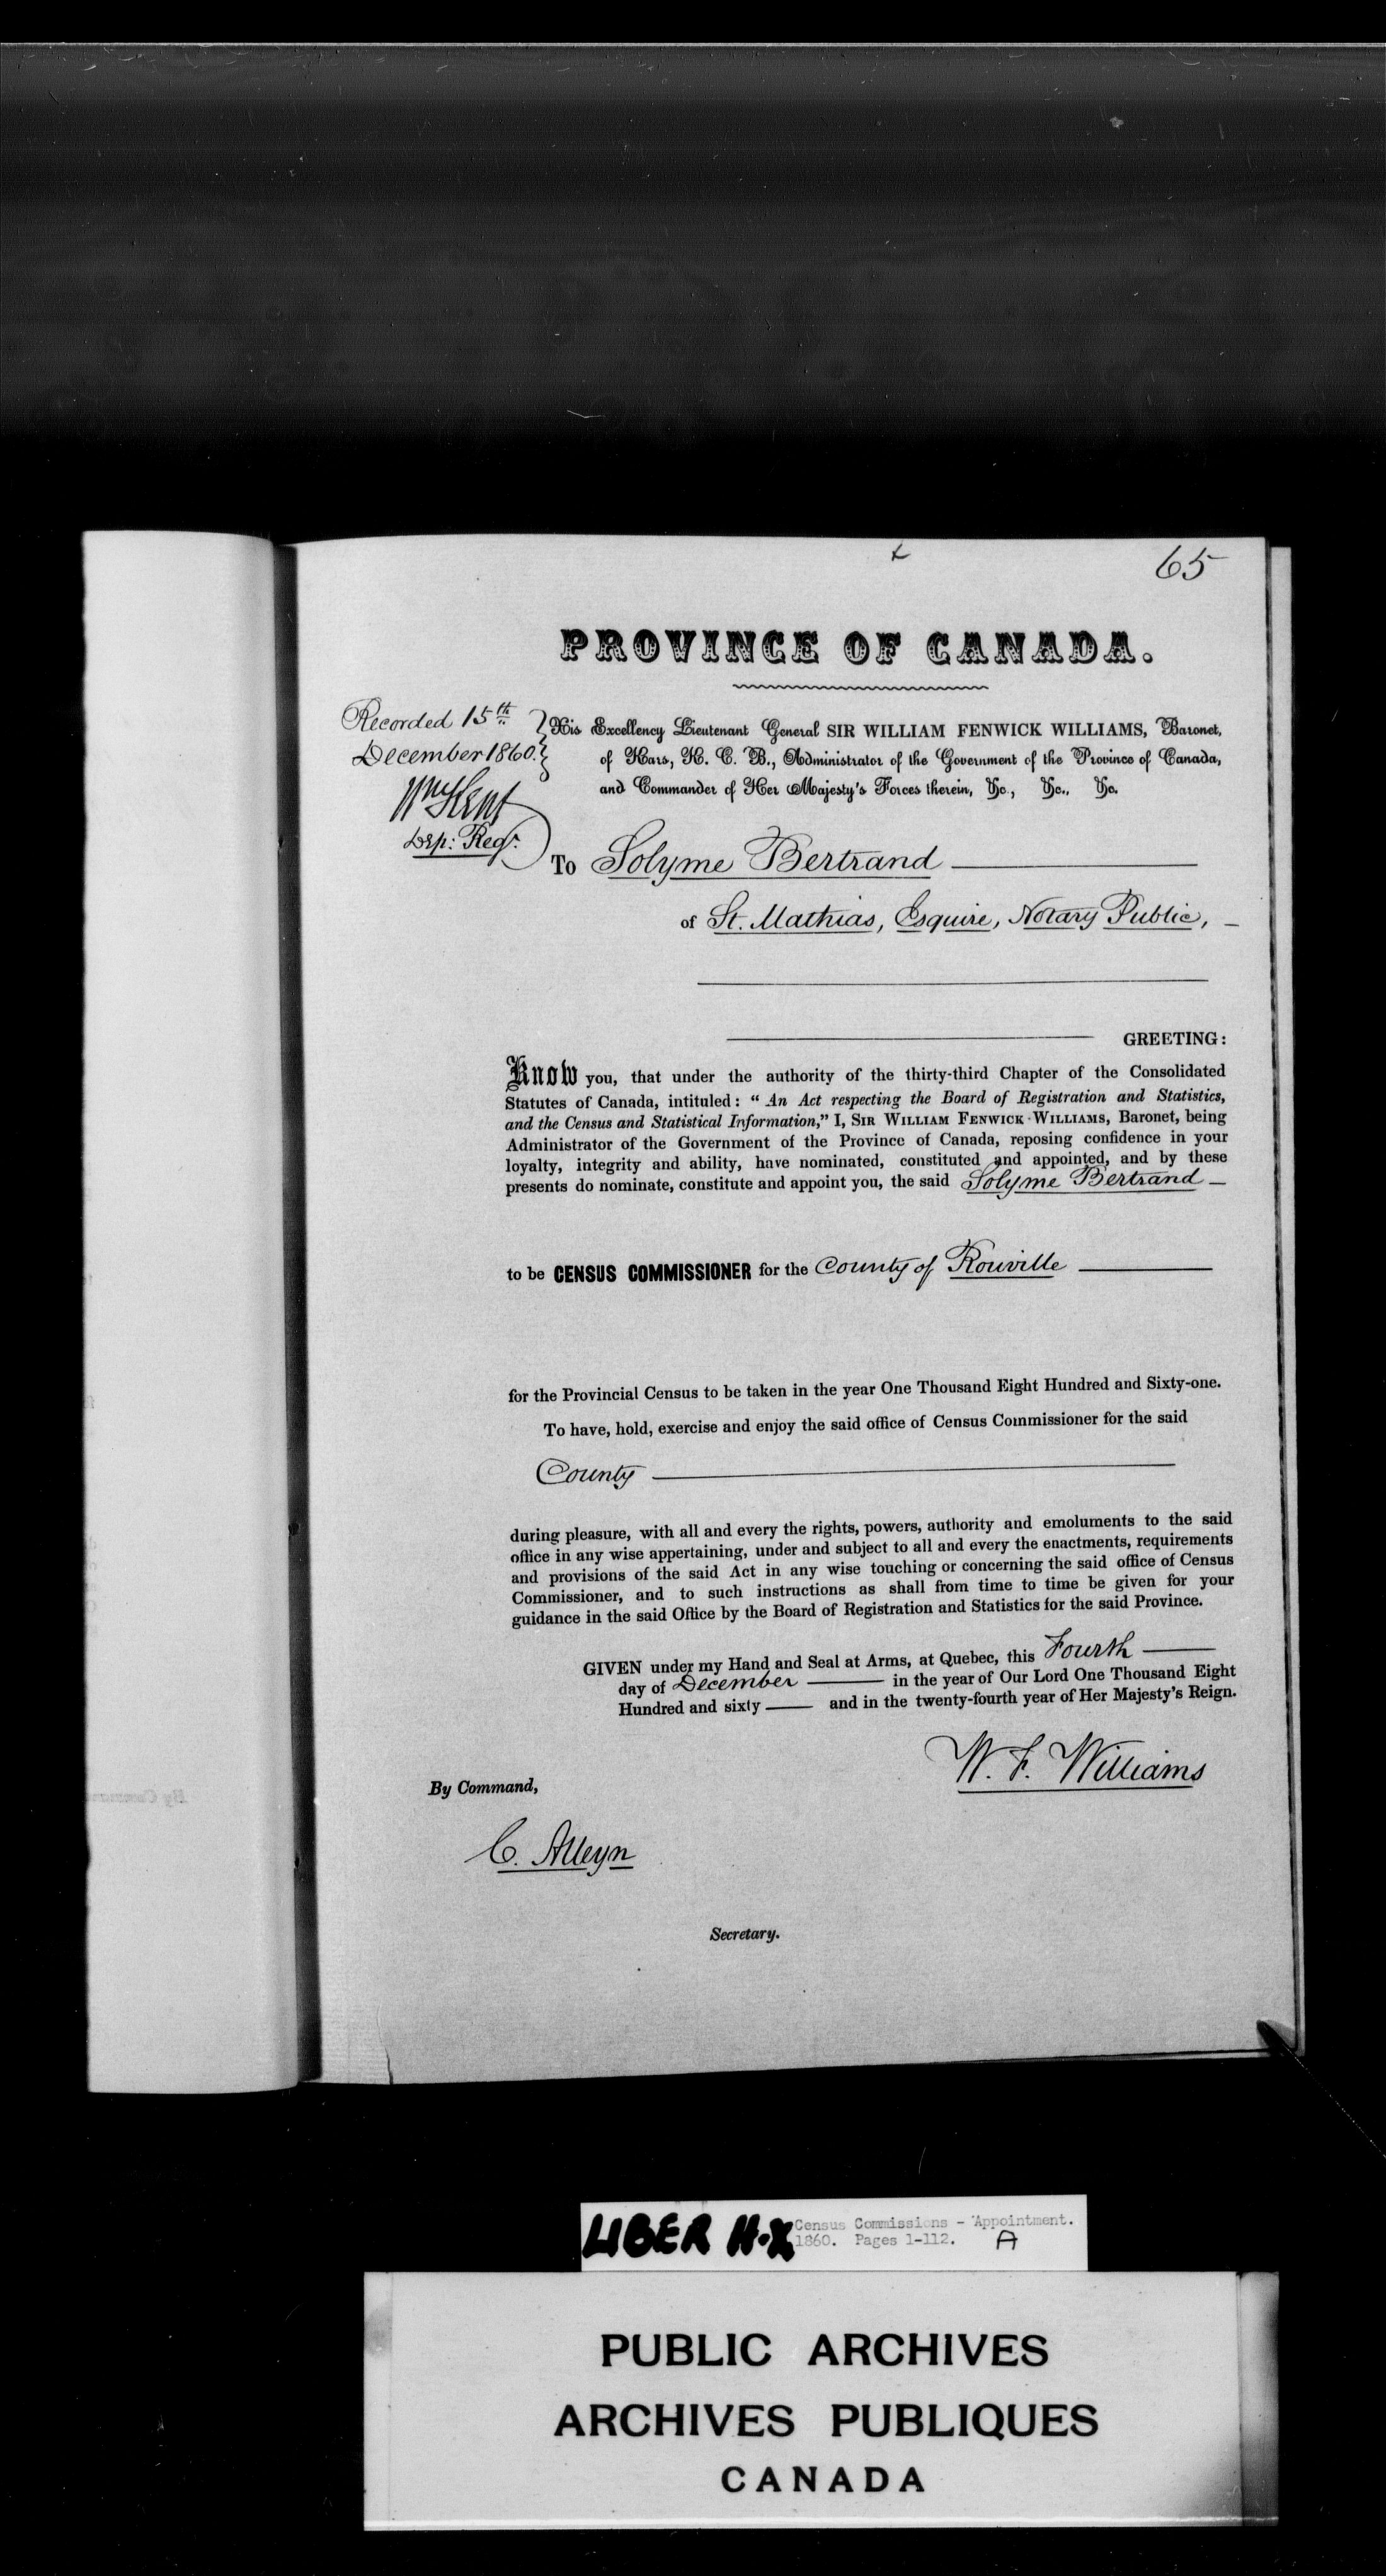 65
PROVINCE OF CANADA.
Recorded 15th
December 1860.
Wm Kent
Dep: Regr.
His Excellency Lieutenant General SIR WILLIAM FENWICK WILLIAMS, Baronet,
of Kars, K. C. B., Administrator of the Government of the Province of Canada,
and Commander of Her Majesty's Forces therein, &c., &c., &c.
To Solyme Bertrand
of St. Mathias, Esquire, Notary Public,
GREETING:
Know you, that under the authority of the thirty-third Chapter of the Consolidated
Statutes of Canada, intituled: "An Act respecting the Board of Registration and Statistics,
and the Census and Statistical Information," I, SIR WILLIAM FENWICK WILLIAMS, Baronet, being
Administrator of the Government of the Province of Canada, reposing confidence in your
loyalty, integrity and ability, have nominated, constituted and appointed, and by these
presents do nominate, constitute and appoint you, the said Solyme Bertrand
to be CENSUS COMMISSIONER for the County of Rouville
for the Provincial Census to be taken in the year One Thousand Eight Hundred and Sixty-one.
To have, hold, exercise and enjoy the said office of Census Commissioner for the said
County
during pleasure, with all and every the rights, powers, authority and emoluments to the said
office in any wise appertaining, under and subject to all and every the enactments, requirements
and provisions of the said Act in any wise touching or concerning the said office of Census
Commissioner, and to such instructions as shall from time to time be given for your
guidance in the said Office by the Board of Registration and Statistics for the said Province.
GIVEN under my Hand and Seal at Arms, at Quebec, this Fourth
day of December in the year of Our Lord One Thousand Eight
Hundred and sixty and in the twenty-fourth year of Her Majesty's Reign.
W. F. Williams
By Command,
C. Alleyn
Secretary.
LIBER H-X Census Commissions - Appointment.
1860. Pages 1-112. A
PUBLIC ARCHIVES
ARCHIVES PUBLIQUES
CANADA